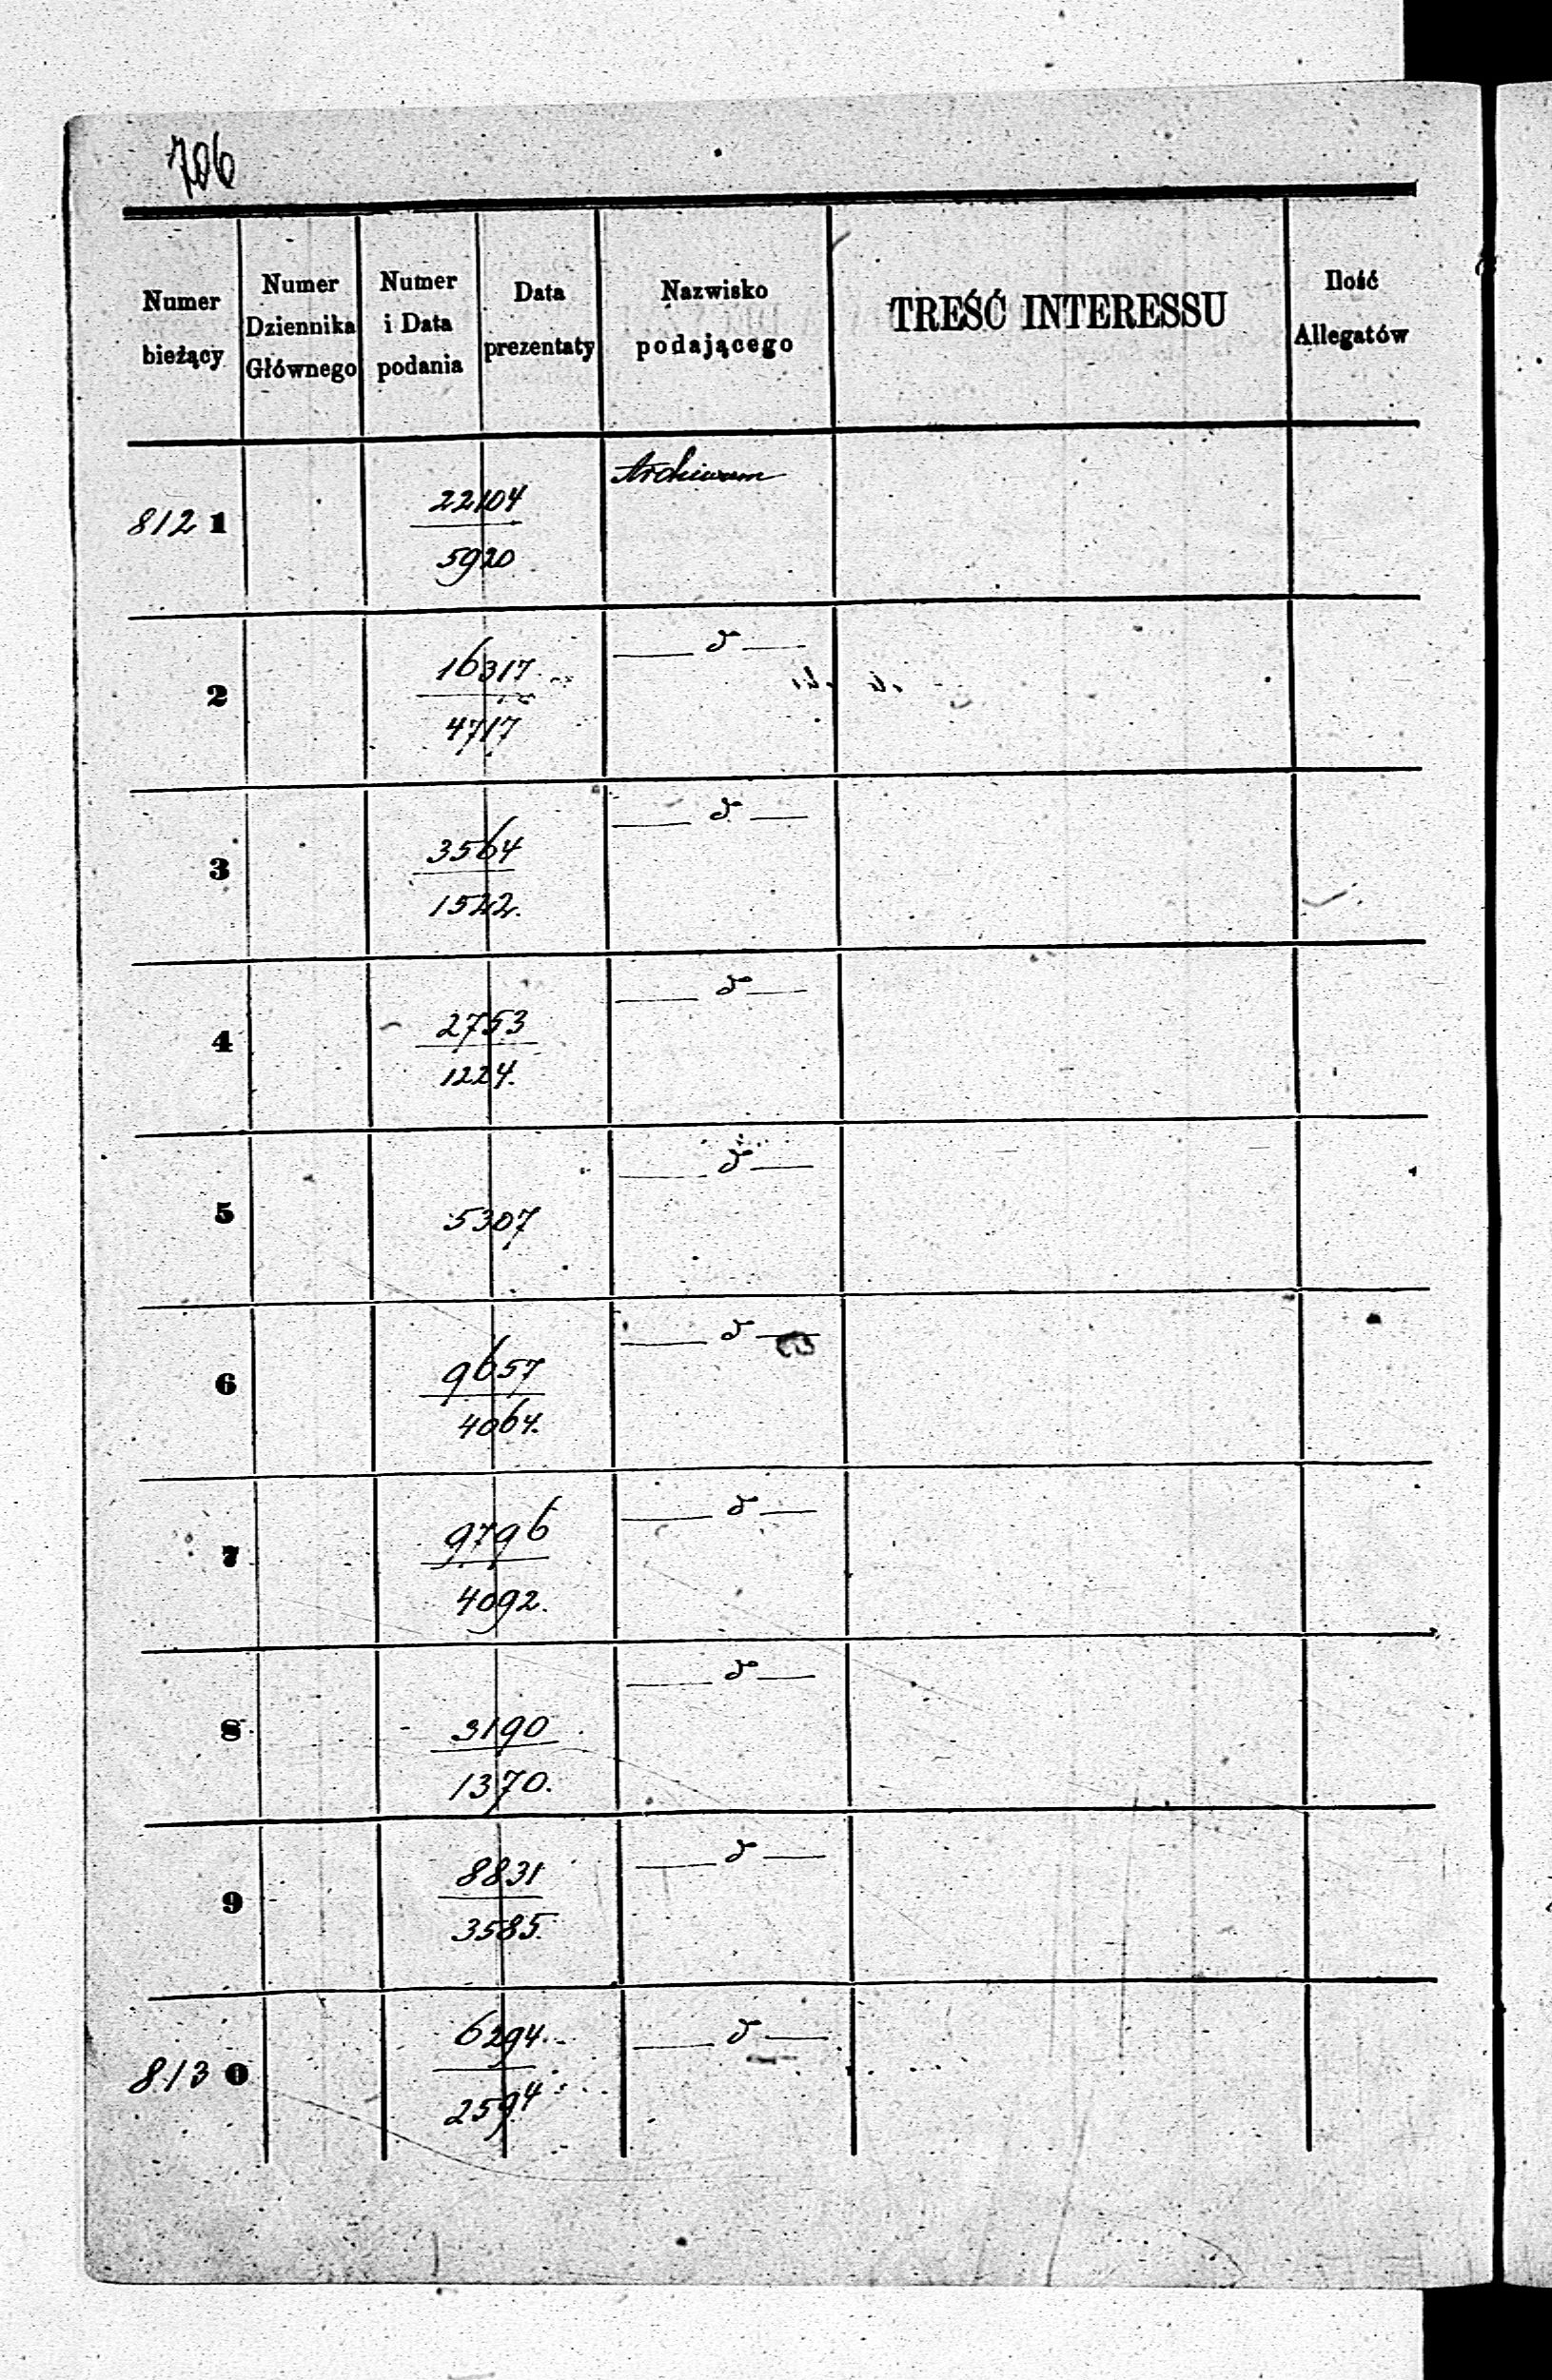 706
Numer bieżący
Numer Dziennika Głównego
Numer i Data podania
Data prezentaty
Nazwisko podającego
TREŚĆ INTERESSU
Ilość Allegatów
Archiwum
22104
8121
5920
d
16317
2
4717
d
3564
3
1522
d
2753
4
1224.
d
5
5307
d
9657
6
4064.
d
9796
7
4092.
d
8
3190
1370.
d
8831
9
3585.
6294.
d
8130
2594